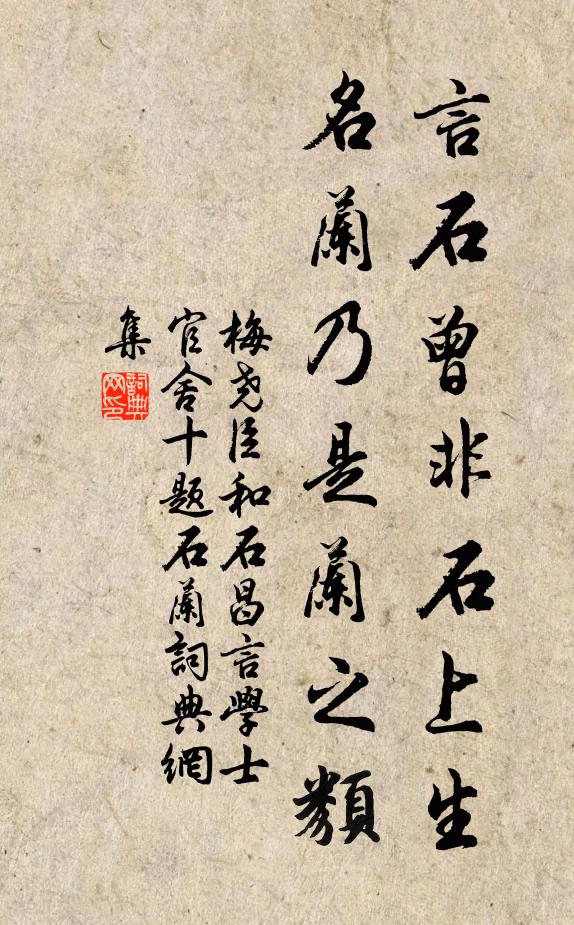 言石曾非石上生
名蘭乃是蘭之類
梅尧臣和石昌言學士
官舍十题石蘭詞典網
集
詞典
网印